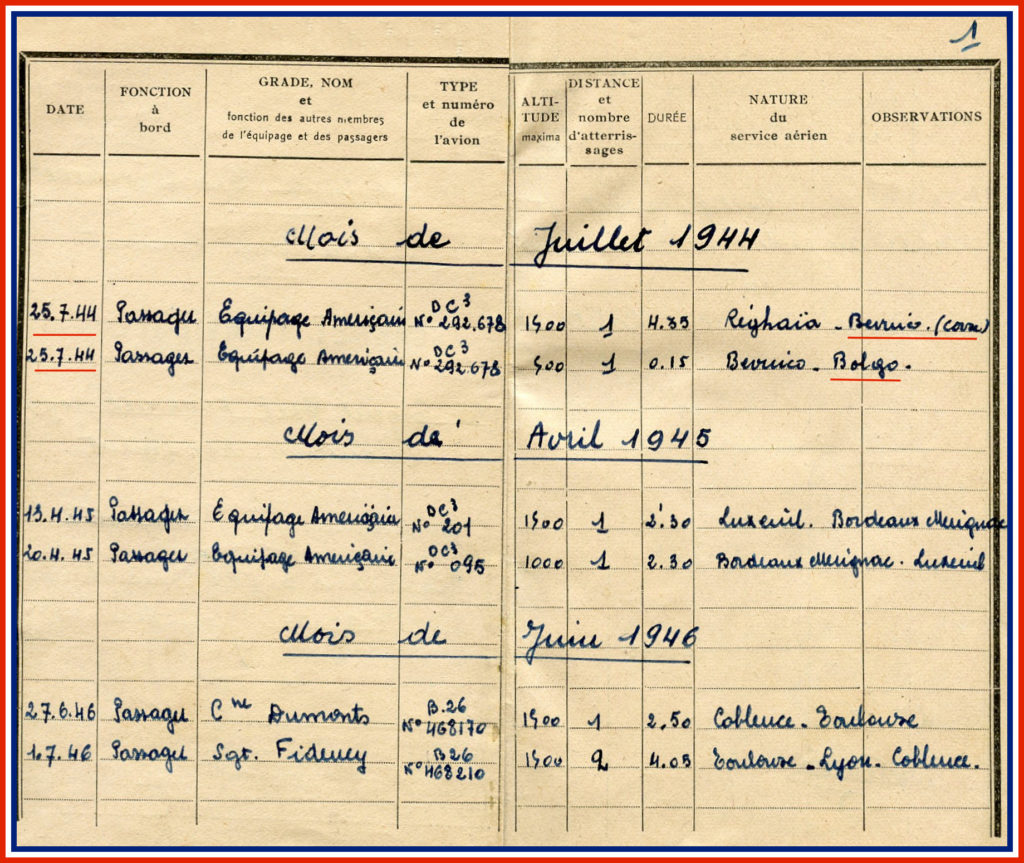 1
DATE FONCTION à bord GRADE, NOM et fonction des autres membres de l'équipage et des passagers TYPE et numéro de l'avion ALTI-TUDE maxima DISTANCE et nombre d'atterris-sages DURÉE NATURE du service aérien OBSERVATIONS
Mois de Juillet 1944
25.7.44 Passager Equipage Américain DC3 N° 292.678 1500 1 4.35 Réghaïa - Bevinco. (Corse)
25.7.44 Passager Equipage Américain DC3 N° 292.678 500 1 0.15 Bevinco - Bolgo.
Mois de Avril 1945
13.4.45 Passager Equipage Américain DC3 N° 201 1500 1 2.30 Luxeuil. Bordeaux Merignac
20.4.45 Passager Equipage Américain DC3 N° 095 1000 1 2.30 Bordeaux Merignac. Luxeuil
Mois de Juin 1946
27.6.46 Passager Cne Dumonts B.26 N° 468170 1500 1 2.50 Coblence - Toulouse
1.7.46 Passager Sgt. B26 N° 468210 1500 2 4.05 Toulouse - Lyon - Coblence.